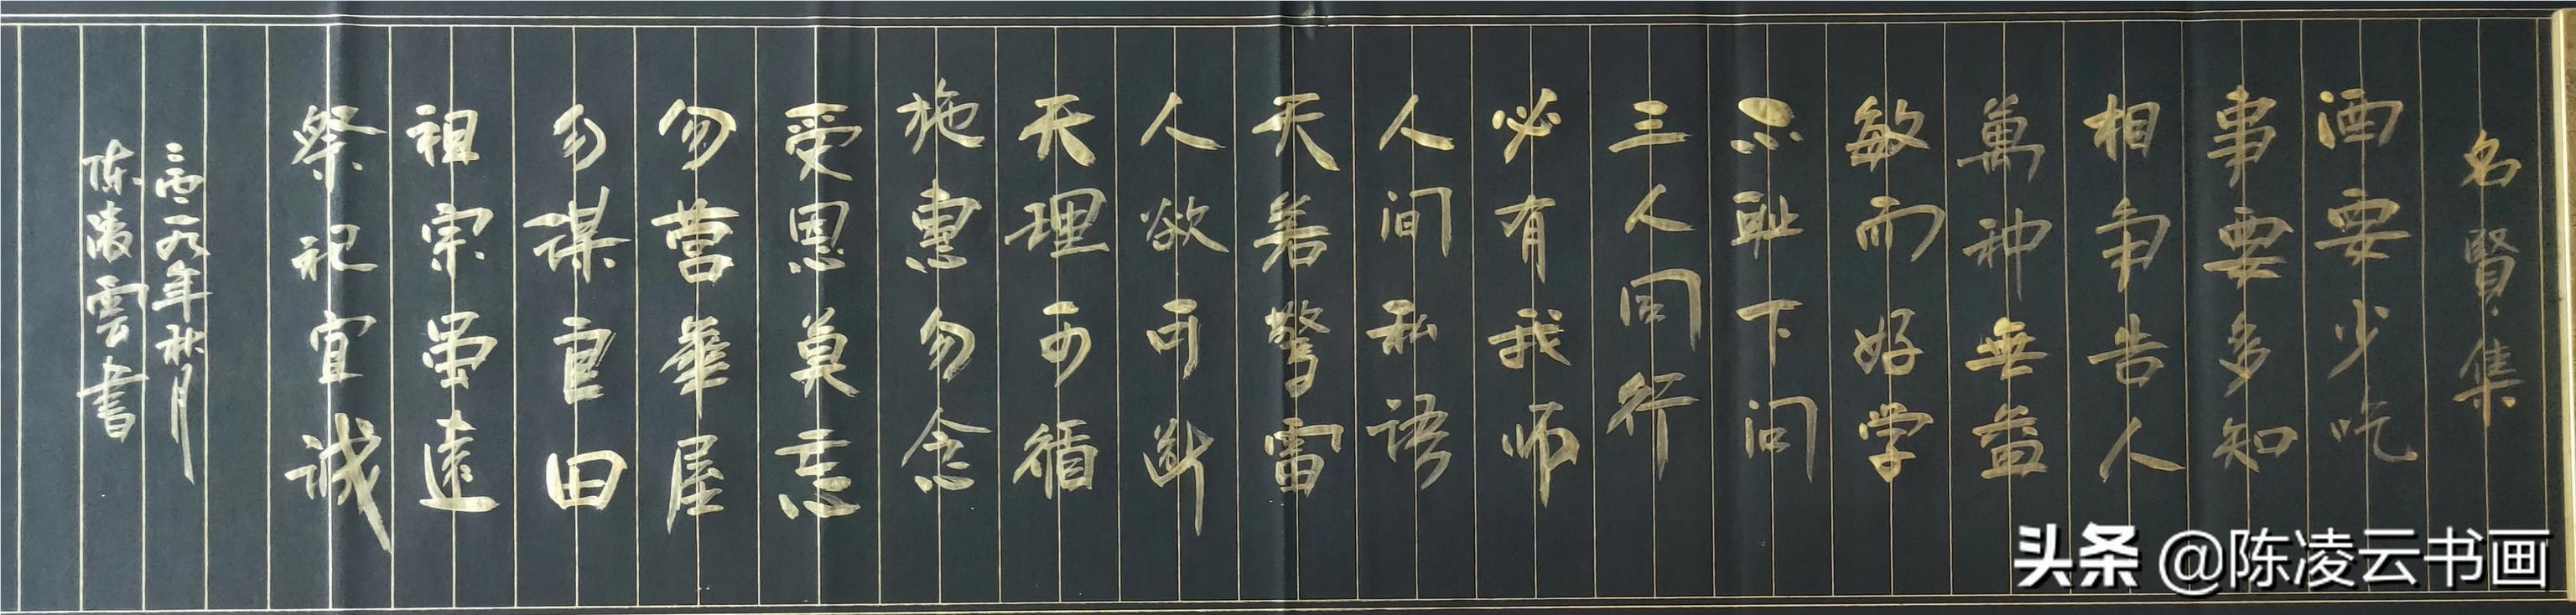 名賢集
酒要少吃
事要多知
相争告人
萬种無益
敏而好学
不耻下问
三人同行
必有我师
人间私语
天若警雷
人欲可断
天理可循
施惠勿念
受恩莫忘
勿營華屋
勿谋良田
祖宗虽遠
祭祀宜诚
二零一九年秋月
陈凌雲書
头条 @陈凌云书画